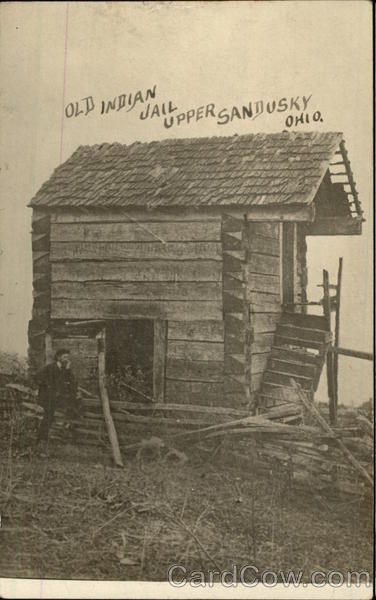 OLD INDIAN JAIL UPPER SANDUSKY OHIO.
CardCow.com